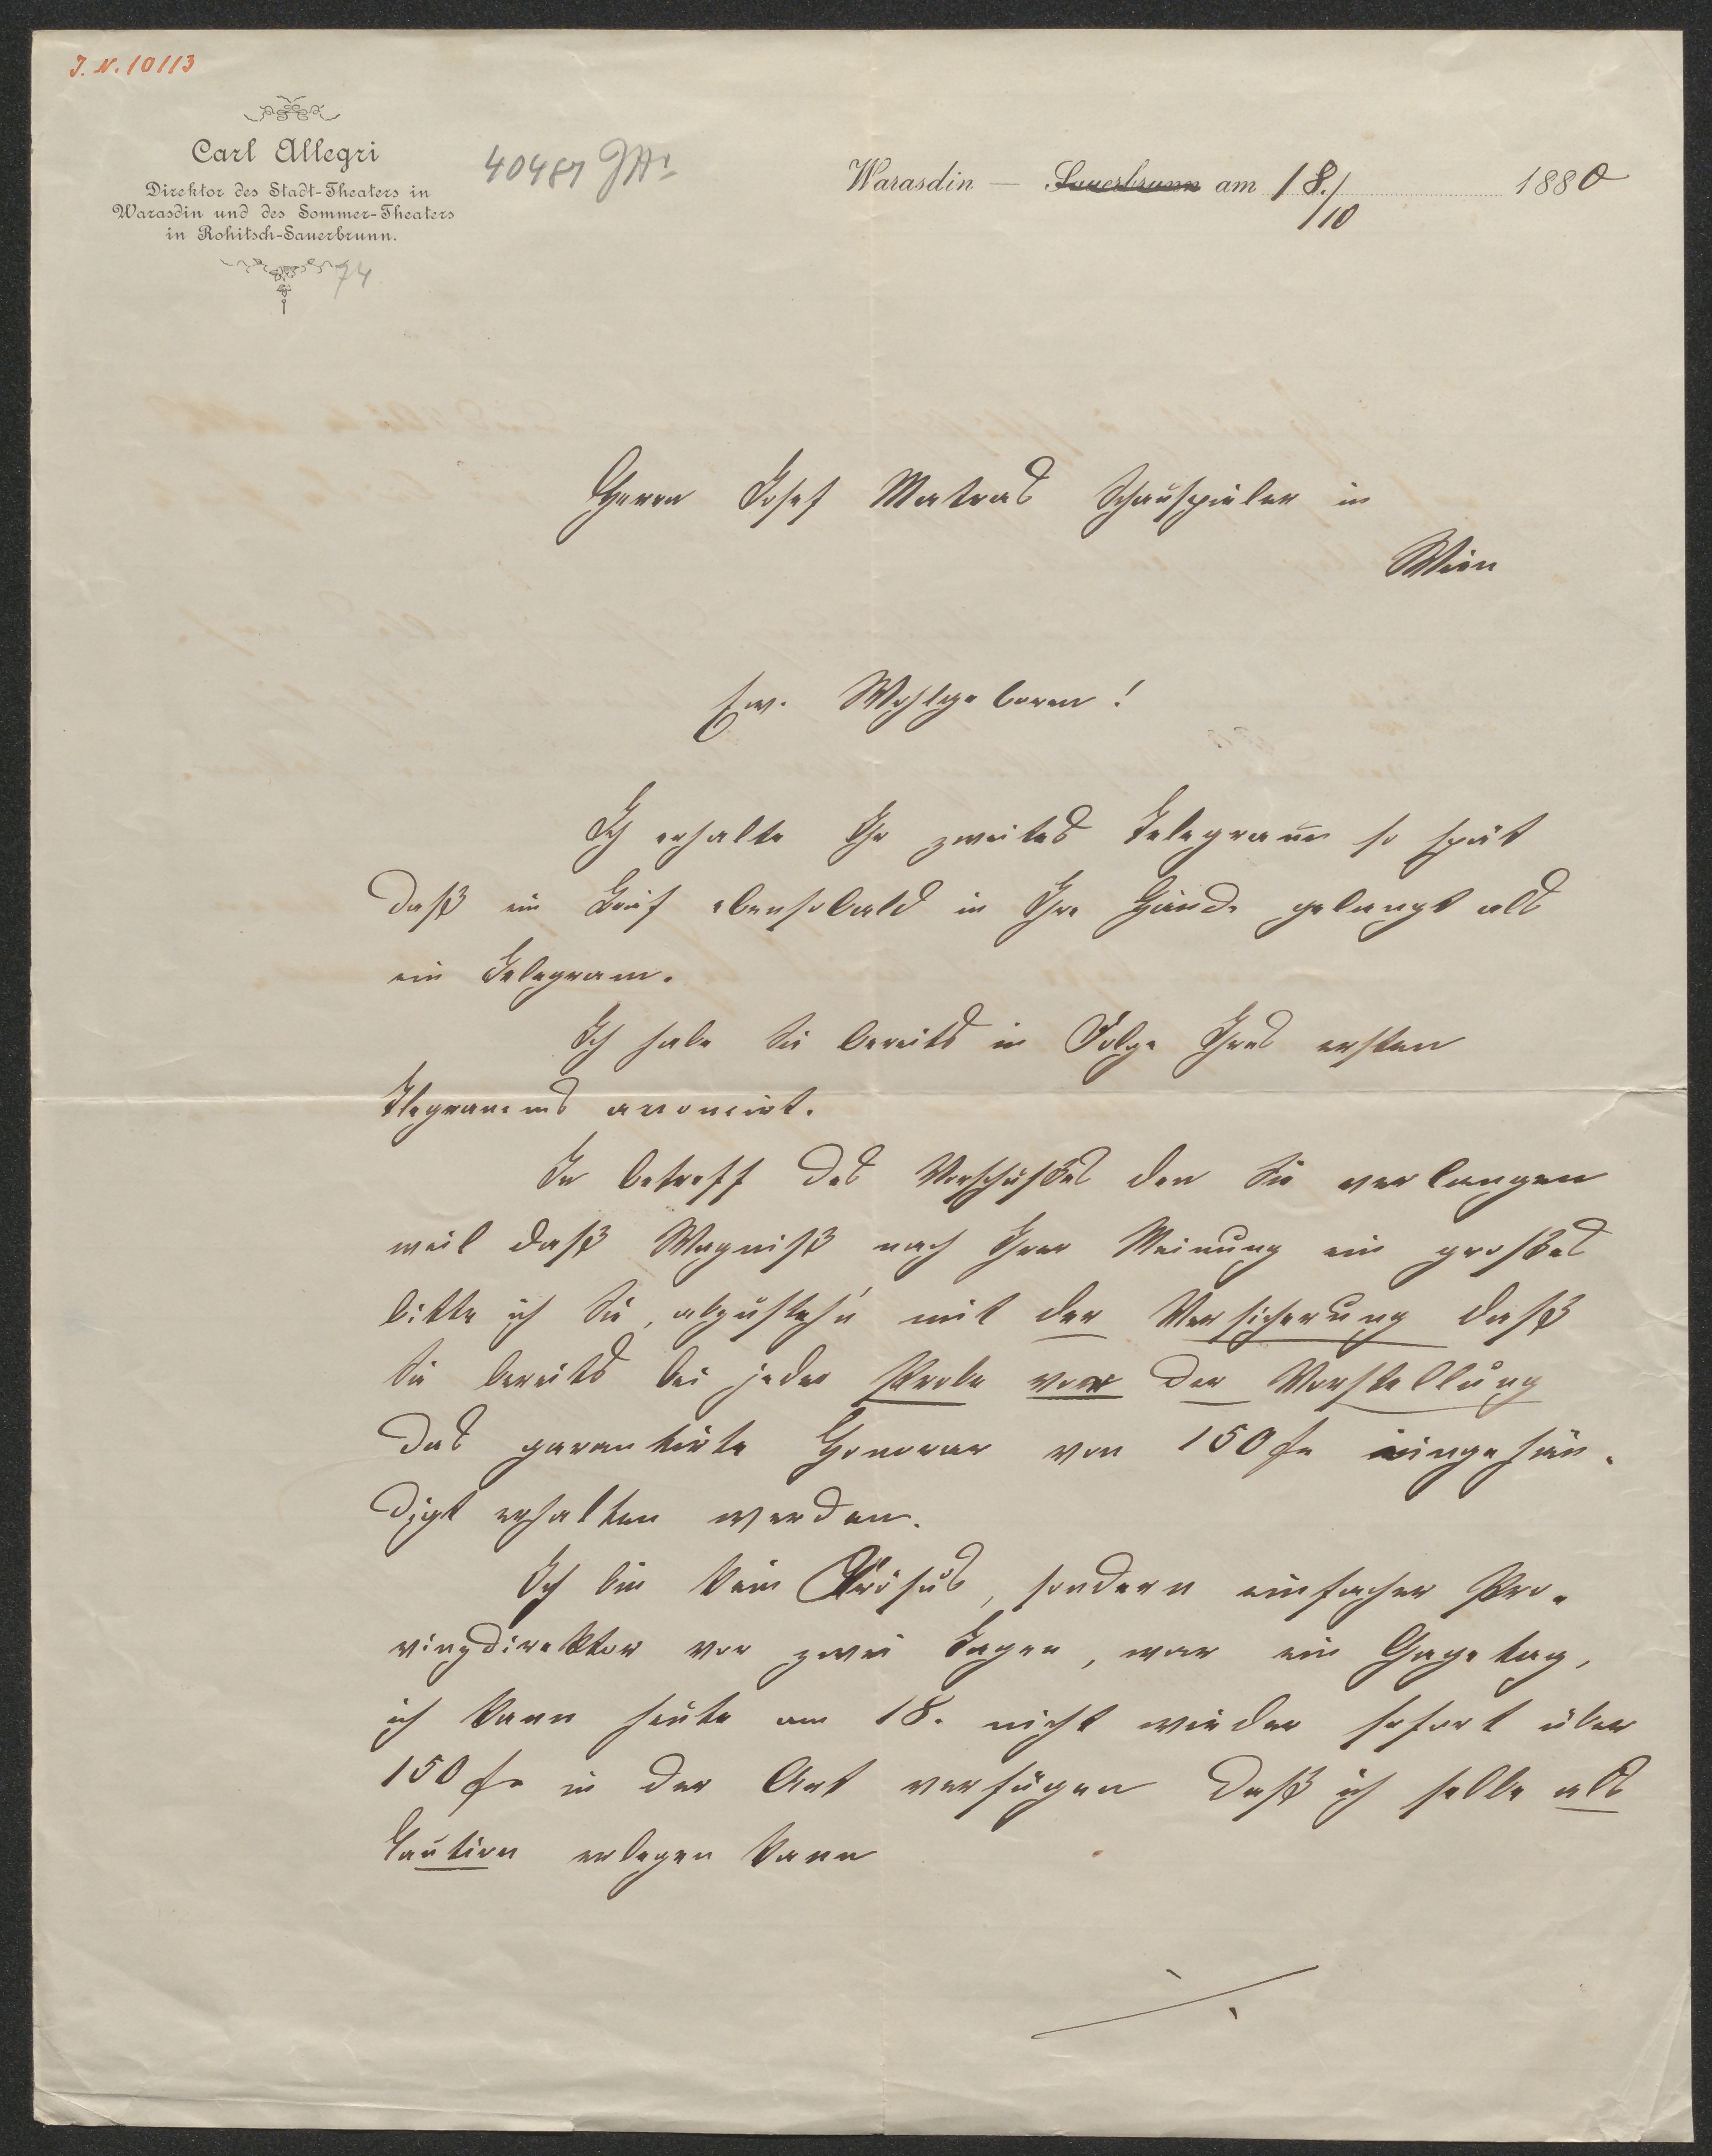 J. N. 10113
Carl Allegri
Direktor des Stadt-Theaters in
Warasdin und des Sommer-Theaters
in Rohitsch-Sauerbrunn.
40481
74
Warasdin — Sauerbrunn am 18./10 1880
Herrn Josef Matras Schauspieler in
Wien
Ew. Wohlgeboren!
Ich erhalte Ihr zweites Telegram̅ so spät
daß ein Brief ebensobald in Ihre Hände gelangt als
ein Telegram.
Ich habe Sie bereits in Folge Ihres ersten
Telegramms annoncirt.
In betreff des Vorschußes den Sie verlangen
weil daß Wagniß nach Ihrer Meinung ein großes
bitte ich Sie, abzusteh'n mit der Versicherung daß
Sie bereits bei jeder Probe vor der Vorstellung
das garantirte Honorar von 150 fr eingehän-
digt erhalten werden.
Ich bin kein Krösus, sondern einfacher Pro-
vinzdirektor vor zwei Tagen, war ein Gagetag,
ich kann heute am 18. nicht wieder sofort über
150 fr in der Art verfügen daß ich selbe als
Caution erlegen kann
./.